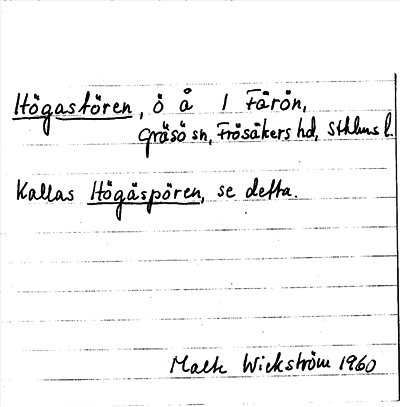 Högastören, ö å 1 Färön,
Gräsö sn, Frösåkers hd, Sthlms l.
Kallas Högäspören, se detta.
Malte Wickström 1960